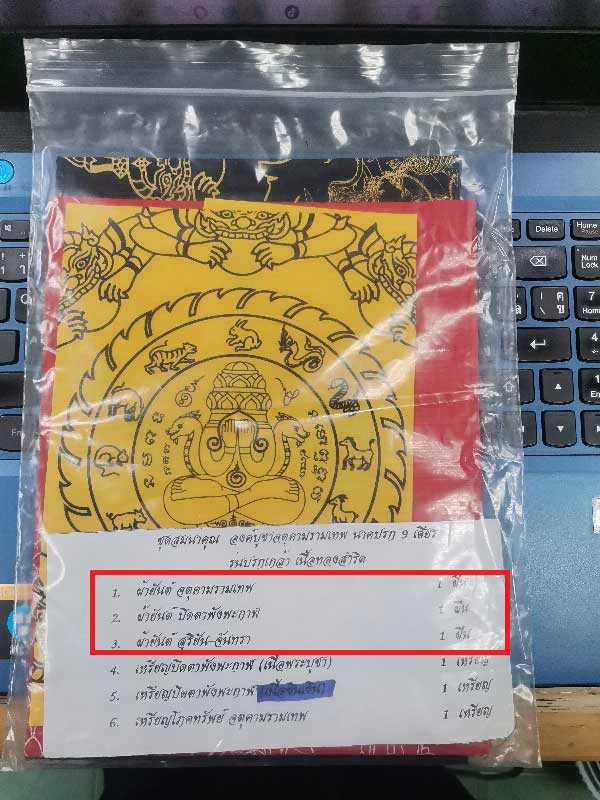 Delete
Home
Pause
Num
Lock
7
Home
4
1
En
ชุดสมนาคุณ องค์บูชาจตุคามรามเทพ นาคปรก 9 เศียร
รุ่นปรกเกล้า เนื้อทองสำริด
1. ผ้ายันต์ จตุคามรามเทพ 1 ผืน
2. ผ้ายันต์ ปิดตาพังพะกาฬ 1 ผืน
3. ผ้ายันต์ สุริยัน-จันทรา 1 ผืน
4. เหรียญปิดตาพังพะกาฬ (เนื้อพระบูชา) 1 เหรียญ
5. เหรียญปิดตาพังพะกาฬ 1 เหรียญ
6. เหรียญโภคทรัพย์ จตุคามรามเทพ 1 เหรียญ